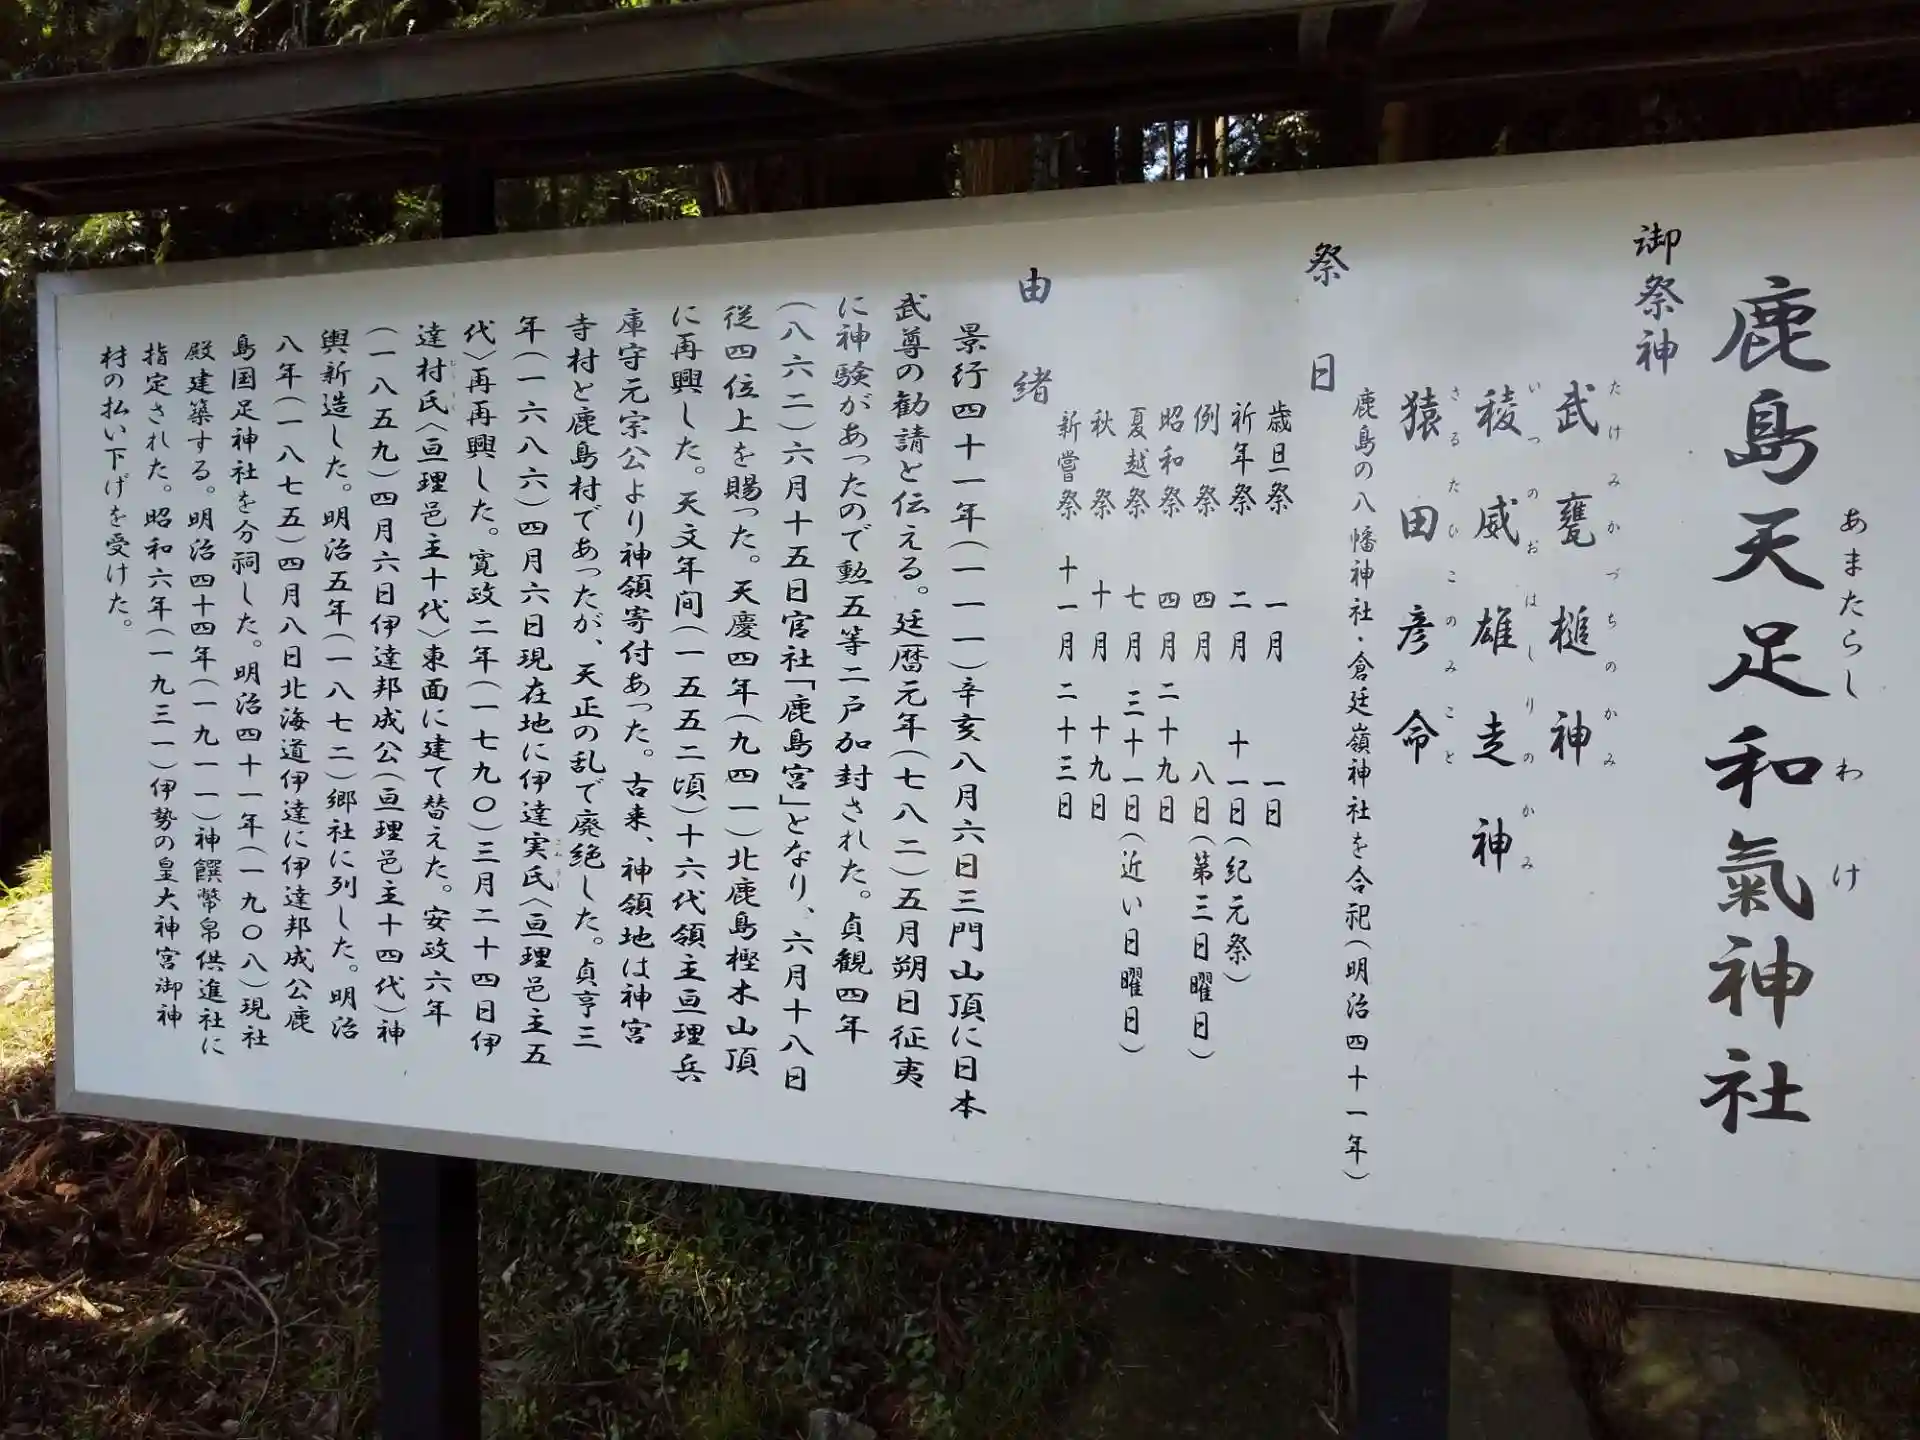 鹿島天足和氣神社
あまたらしわけ
御祭神
武甕槌神
たけみかづちのかみ
稜威雄走神
いつのおはしりのかみ
猿田彦命
さるたひこのみこと
鹿島の八幡神社・倉廷嶺神社を合祀(明治四十一年)
祭日
歳旦祭 一月 一日
祈年祭 二月 十一日(紀元祭)
例祭 四月 八日(第三日曜日)
昭和祭 四月二十九日
夏越祭 七月三十一日(近い日曜日)
秋祭 十月 十九日
新嘗祭 十一月二十三日
由緒
景行四十一年(一一一)辛亥八月六日三門山頂に日本
武尊の勧請と伝える。廷暦元年(七八二)五月朔日征夷
に神験があったので勲五等二戸加封された。貞観四年
(八六二)六月十五日官社「鹿島宮」となり、六月十八日
従四位上を賜った。天慶四年(九四一)北鹿島樫木山頂
に再興した。天文年间(一五五二頃)十六代領主亘理兵
庫守元宗公より神領寄付あった。古来、神領地は神宮
寺村と鹿島村であったが、天正の乱で廃絶した。貞亨三
年(一六八六)四月六日現在地に伊達実氏〈亘理邑主五
代〉再再興した。寛政二年(一七九〇)三月二十四日伊
達村氏〈亘理邑主十代〉東面に建て替えた。安政六年
(一八五九)四月六日伊達邦成公(亘理邑主十四代)神
輿新造した。明治五年(一八七二)郷社に列した。明治
八年(一八七五)四月八日北海道伊達に伊達邦成公鹿
島国足神社を分祠した。明治四十一年(一九〇八)現社
殿建築する。明治四十四年(一九一一)神饌幣帛供進社に
指定された。昭和六年(一九三一)伊勢の皇大神宮御神
村の払い下げを受けた。